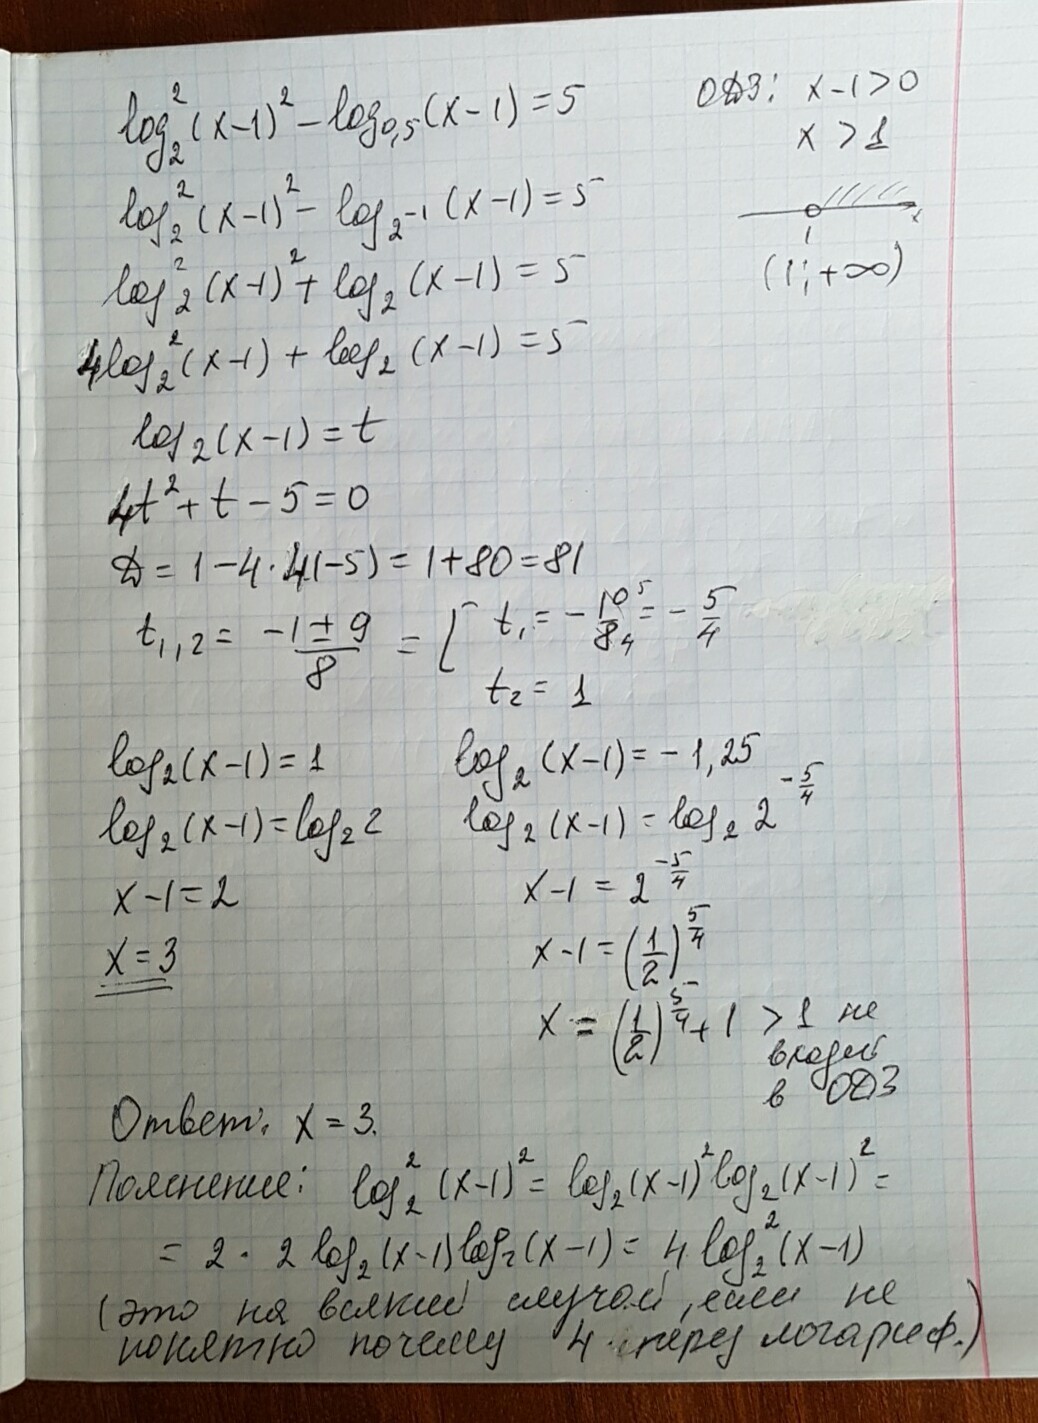 log₂²(x-1)² - log₀,₅(x-1) = 5
ОДЗ: x-1>0
x > 1
log₂²(x-1)² - log₂₋₁(x-1) = 5
1 x
log₂²(x-1)² + log₂(x-1) = 5
(1; +∞)
4log₂²(x-1) + log₂(x-1) = 5
log₂(x-1) = t
4t² + t - 5 = 0
D = 1 - 4·4(-5) = 1+80 = 81
t₁,₂ = (-1 ± 9)/8 = [ t₁ = -10⁵/8₄ = -5/4
t₂ = 1
log₂(x-1) = 1
log₂(x-1) = log₂2
x-1 = 2
x = 3
log₂(x-1) = -1,25
log₂(x-1) = log₂2^(-5/4)
x-1 = 2^(-5/4)
x-1 = (1/2)^(5/4)
x = (1/2)^(5/4) + 1 > 1 не
входит
в ОДЗ
Ответ: x = 3.
Пояснение: log₂²(x-1)² = log₂(x-1)² log₂(x-1)² =
= 2 · 2 log₂(x-1) log₂(x-1) = 4 log₂²(x-1)
(это на всякий случай, если не
понятно почему 4 перед логариф.)